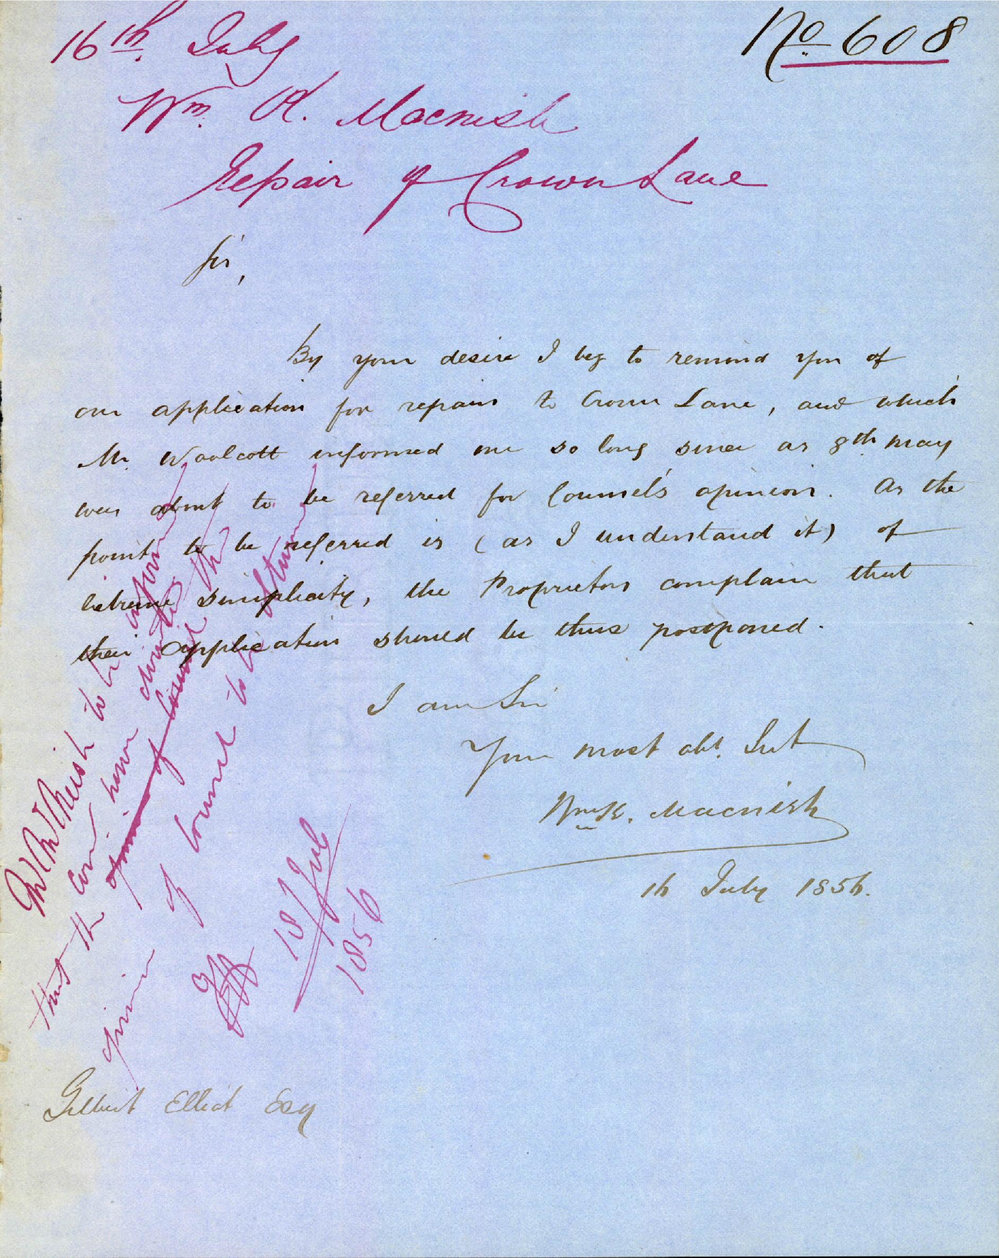 16th July
No 608
Wm. K. Macnish
Repair of Crown Lane
Sir,
By your desire I beg to remind you of
our application for repairs to Crown Lane, and which
Mr Woolcott informed me so long since as 8th May
was about to be referred for Counsel's opinion. As the
point to be referred is (as I understand it) of
extreme simplicity, the Proprietors complain that
their application should be thus postponed.
I am Sir
Your most obt. Svt
Wm K. Macnish
16 July 1856.
Mr McNish to be informed
that the Comrs have directed the
opinion of Counsel
opinion of Counsel to be obtained
18/July
1856
Gilbert Elliot Esq